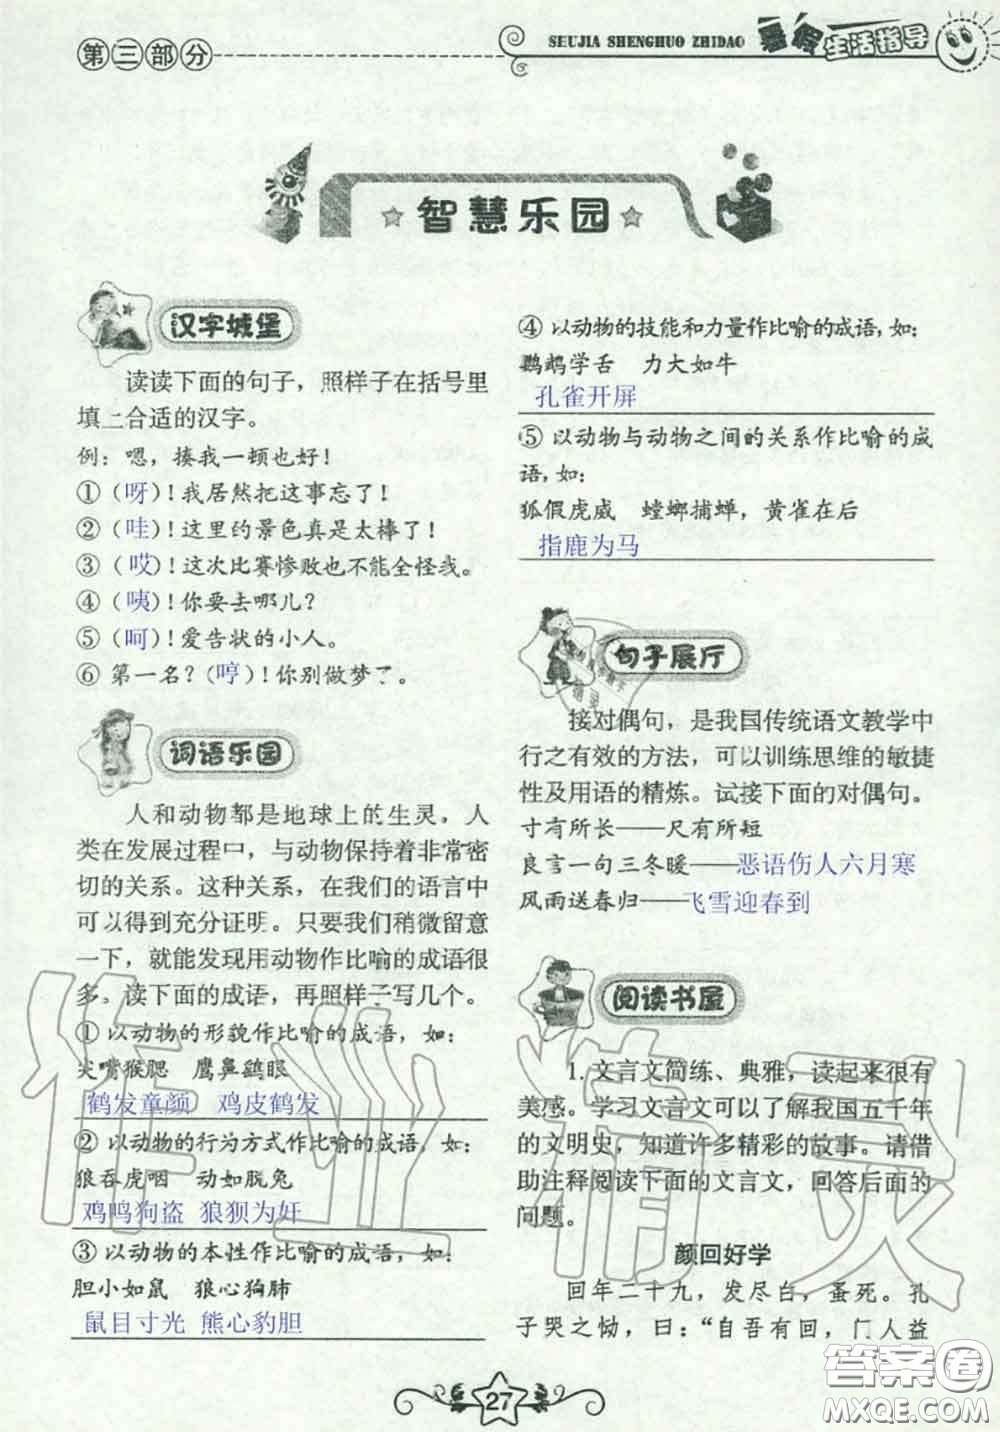 第三部分
SEUJIA SHENGHUO ZHIDAO
暑假生活指导
智慧乐园
汉字城堡
读读下面的句子，照样子在括号里
填上合适的汉字。
例：嗯，揍我一顿也好！
①（呀）！我居然把这事忘了！
②（哇）！这里的景色真是太棒了！
③（哎）！这次比赛惨败也不能全怪我。
④（咦）！你要去哪儿？
⑤（呵）！爱告状的小人。
⑥ 第一名？（哼）！你别做梦了。
词语乐园
人和动物都是地球上的生灵，人
类在发展过程中，与动物保持着非常密
切的关系。这种关系，在我们的语言中
可以得到充分证明。只要我们稍微留意
一下，就能发现用动物作比喻的成语很
多。读下面的成语，再照样子写几个。
① 以动物的形貌作比喻的成语，如：
尖嘴猴腮 鹰鼻鹞眼
鹤发童颜 鸡皮鹤发
② 以动物的行为方式作比喻的成语，如：
狼吞虎咽 动如脱兔
鸡鸣狗盗 狼狈为奸
③ 以动物的本性作比喻的成语，如：
胆小如鼠 狼心狗肺
鼠目寸光 熊心豹胆
④ 以动物的技能和力量作比喻的成语，如：
鹦鹉学舌 力大如牛
孔雀开屏
⑤ 以动物与动物之间的关系作比喻的成
语，如：
狐假虎威 螳螂捕蝉，黄雀在后
指鹿为马
句子展厅
接对偶句，是我国传统语文教学中
行之有效的方法，可以训练思维的敏捷
性及用语的精炼。试接下面的对偶句。
寸有所长——尺有所短
良言一句三冬暖——恶语伤人六月寒
风雨送春归——飞雪迎春到
阅读书屋
1. 文言文简练、典雅，读起来很有
美感。学习文言文可以了解我国五千年
的文明史，知道许多精彩的故事。请借
助注释阅读下面的文言文，回答后面的
问题。
颜回好学
回年二十九，发尽白，蚤死。孔
子哭之恸，曰：“自吾有回，门人益
27
作业精灵
答案圈
MXQE.COM